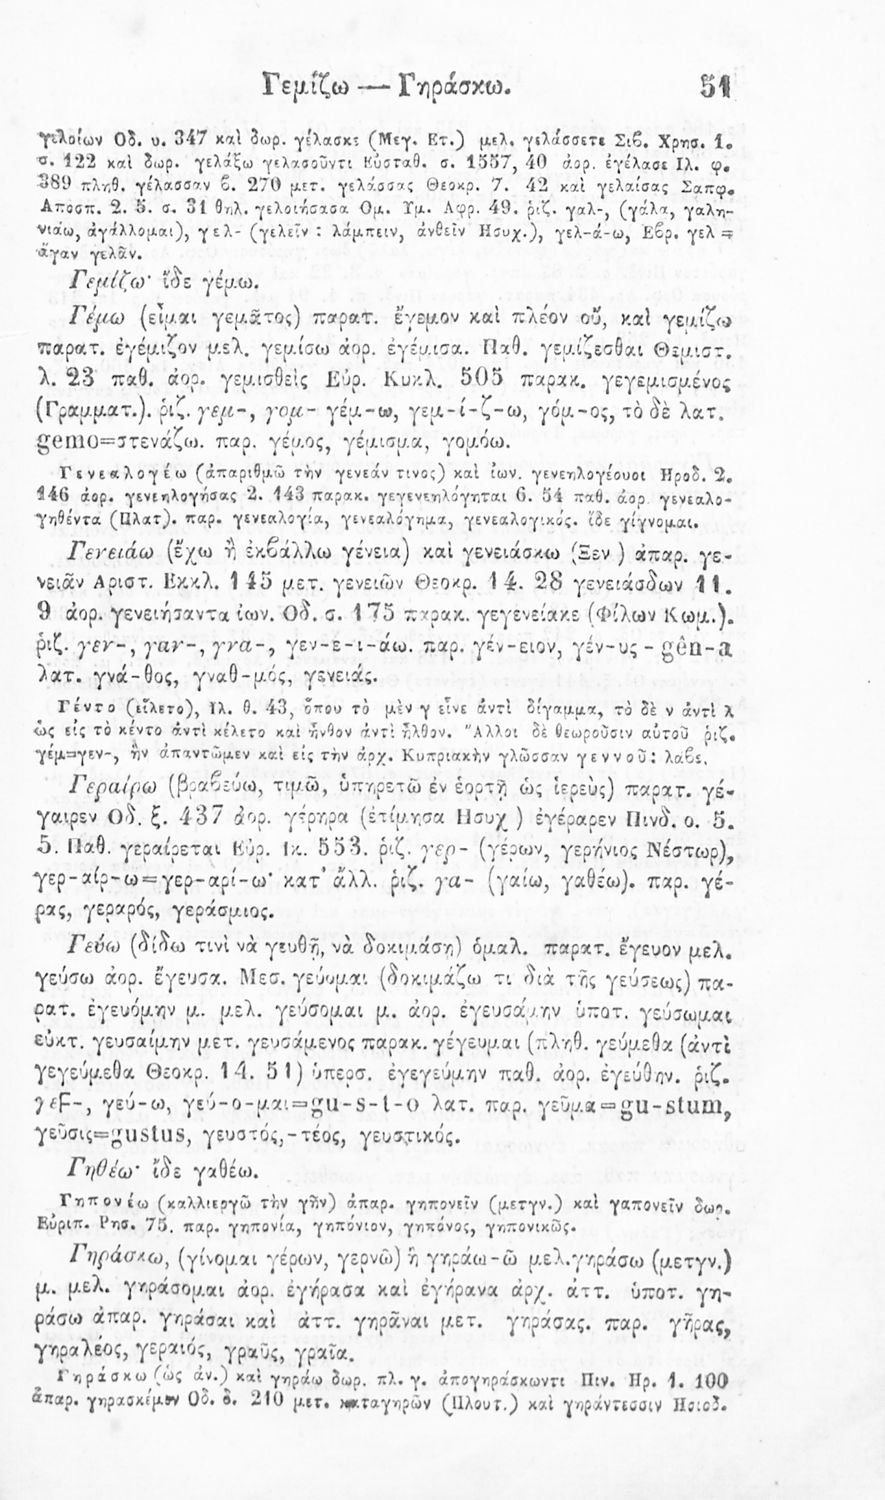 Γεμίζω — Γηράσκω. 51
γελοίων Οδ. υ. 347 καὶ δωρ. γέλασκε (Μεγ. Ετ.) μελ. γελάσσετε Σιβ. Χρησ. 1.
σ. 122 καὶ δωρ. γελάξω γελασοῦντι Εὐσταθ. σ. 1557, 40 ἀορ. ἐγέλασε Ιλ. φ.
389 πληθ. γέλασσαν ϐ. 270 μετ. γελάσσας Θεοκρ. 7. 42 καὶ γελαίσας Σαπφ.
Αποσπ. 2. 5. σ. 31 θηλ. γελοιήσασα Ομ. Υμ. Αφρ. 49. ῥιζ. γαλ-, (γάλα, γαλη-
νιάω, ἀγάλλομαι), γελ- (γελεῖν : λάμπειν, ἀνθεῖν Ησυχ.), γελ-ά-ω, Εβρ. γελ =
ἄγαν γελᾶν.
Γεμίζω· ἴδε γέμω.
Γέμω (εἶμαι γεμᾶτος) παρατ. ἔγεμον καὶ πλέον οὔ, καὶ γεμίζω
παρατ. ἐγέμιζον μελ. γεμίσω ἀορ. ἐγέμισα. Παθ. γεμίζεσθαι Θεμιστ.
λ. 23 παθ. ἀορ. γεμισθεὶς Εὐρ. Κυκλ. 505 παρακ. γεγεμισμένος
(Γραμματ.). ῥιζ. γεμ-, γομ- γέμ-ω, γεμ-ί-ζ-ω, γόμ-ος, τὸ δὲ λατ.
gemo=στενάζω. παρ. γέμος, γέμισμα, γομόω.
Γενεαλογέω (ἀπαριθμῶ τὴν γενεάν τινος) καὶ ἰων. γενεηλογέουσι Ηροδ. 2.
146 ἀορ. γενεηλογήσας 2. 143 παρακ. γεγενεηλόγηται 6. 54 παθ. ἀορ. γενεαλο-
γηθέντα (Πλατ). παρ. γενεαλογία, γενεαλόγημα, γενεαλογικός. ἴδε γίγνομαι.
Γενειάω (ἔχω ἢ ἐκβάλλω γένεια) καὶ γενειάσκω (Ξεν ) ἀπαρ. γε-
νειᾶν Αριστ. Εκκλ. 145 μετ. γενειῶν Θεοκρ. 14. 28 γενειάσδων 11.
9 ἀορ. γενειήσαντα ἰων. Οδ. σ. 175 παρακ. γεγενείακε (Φίλων Κωμ.).
ῥιζ. γεν-, γαν-, γνα-, γεν-ε-ι-άω. παρ. γέν-ειον, γέν-υς - gên-a
λατ. γνά-θος, γναθ-μός, γενειάς.
Γέντο (εἵλετο), Ιλ. θ. 43, ὅπου τὸ μὲν γ εἶνε ἀντὶ δίγαμμα, τὸ δὲ ν ἀντὶ λ
ὡς εἰς τὸ κέντο ἀντὶ κέλετο καὶ ἦνθον ἀντὶ ἦλθον. Ἄλλοι δὲ θεωροῦσιν αὐτοῦ ῥιζ.
γέμ=γεν-, ἣν ἀπαντῶμεν καὶ εἰς τὴν ἀρχ. Κυπριακὴν γλῶσσαν γεννοῦ: λαβέ.
Γεραίρω (βραβεύω, τιμῶ, ὑπηρετῶ ἐν ἑορτῇ ὡς ἱερεὺς) παρατ. γέ-
γαιρεν Οδ. ξ. 437 ἀορ. γέρηρα (ἐτίμησα Ησυχ ) ἐγέραρεν Πινδ. ο. 5.
5. Παθ. γεραίρεται Εὐρ. Ικ. 553. ῥιζ. γερ- (γέρων, γερήνιος Νέστωρ),
γερ-αίρ-ω=γερ-αρί-ω· κατ᾽ ἄλλ. ῥιζ. γα- (γαίω, γαθέω). παρ. γέ-
ρας, γεραρός, γεράσμιος.
Γεύω (δίδω τινὶ νὰ γευθῇ, νὰ δοκιμάσῃ) ὁμαλ. παρατ. ἔγευον μελ.
γεύσω ἀορ. ἔγευσα. Μεσ. γεύομαι (δοκιμάζω τι διὰ τῆς γεύσεως) πα-
ρατ. ἐγευόμην μ. μελ. γεύσομαι μ. ἀορ. ἐγευσάμην ὑποτ. γεύσωμαι
εὐκτ. γευσαίμην μετ. γευσάμενος παρακ. γέγευμαι (πληθ. γεύμεθα (ἀντὶ
γεγεύμεθα Θεοκρ. 14. 51) ὑπερσ. ἐγεγεύμην παθ. ἀορ. ἐγεύθην. ῥιζ.
γεF-, γεύ-ω, γεύ-ο-μαι=gu-s-t-o λατ. παρ. γεῦμα=gu-stum,
γεῦσις=gustus, γευστός,-τέος, γευστικός.
Γηθέω· ἴδε γαθέω.
Γηπονέω (καλλιεργῶ τὴν γῆν) ἀπαρ. γηπονεῖν (μετγν.) καὶ γαπονεῖν δωρ.
Εὐριπ. Ρησ. 75. παρ. γηπονία, γηπόνιον, γηπόνος, γηπονικῶς.
Γηράσκω, (γίνομαι γέρων, γερνῶ) ἢ γηράω-ῶ μελ.γηράσω (μετγν.)
μ. μελ. γηράσομαι ἀορ. ἐγήρασα καὶ ἐγήρανα ἀρχ. ἀττ. ὑποτ. γη-
ράσω ἀπαρ. γηράσαι καὶ ἀττ. γηρᾶναι μετ. γηράσας. παρ. γῆρας,
γηραλέος, γεραιός, γραῦς, γραῖα.
Γηράσκω (ὡς ἀν.) καὶ γηράω δωρ. πλ. γ. ἀπογηράσκωντι Πιν. Ηρ. 1. 100
ἀπαρ. γηρασκέμεν Οδ. δ. 210 μετ. καταγηρῶν (Πλουτ.) καὶ γηράντεσσιν Ησιοδ.